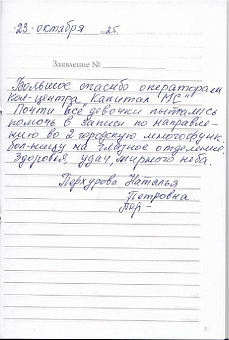 23 октября 25.
Заявление №
Большое спасибо операторам
кол-центра "Капитал МС"
Почти все девочки пытались
помочь в записи по направле-
нию во 2 городскую многофунк.
бол-ницу на глазное отделение
Здоровья, удач, мирного неба.
Перхурова Наталья
Петровна